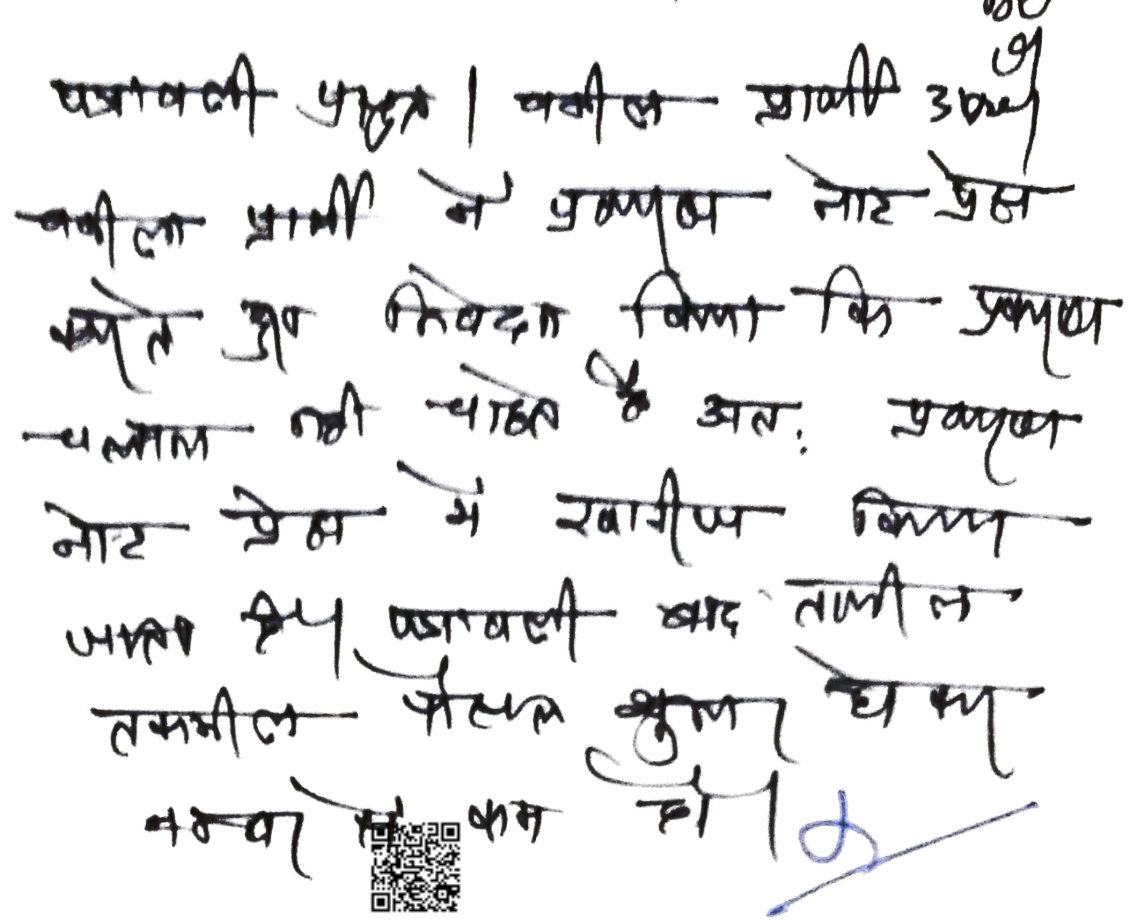 पत्रावली प्रस्तुत। वकील प्रार्थी उप०।
वकील प्रार्थी ने प्रकरण नोट प्रेस
करते हुए निवेदन किया कि प्रकरण
चलाना नही चाहते है अत: प्रकरण
नोट प्रेस में खारीज किया
जाता है। पत्रावली बाद तामील
तकमील फैसल शुमार होकर
नम्बर से कम हो।